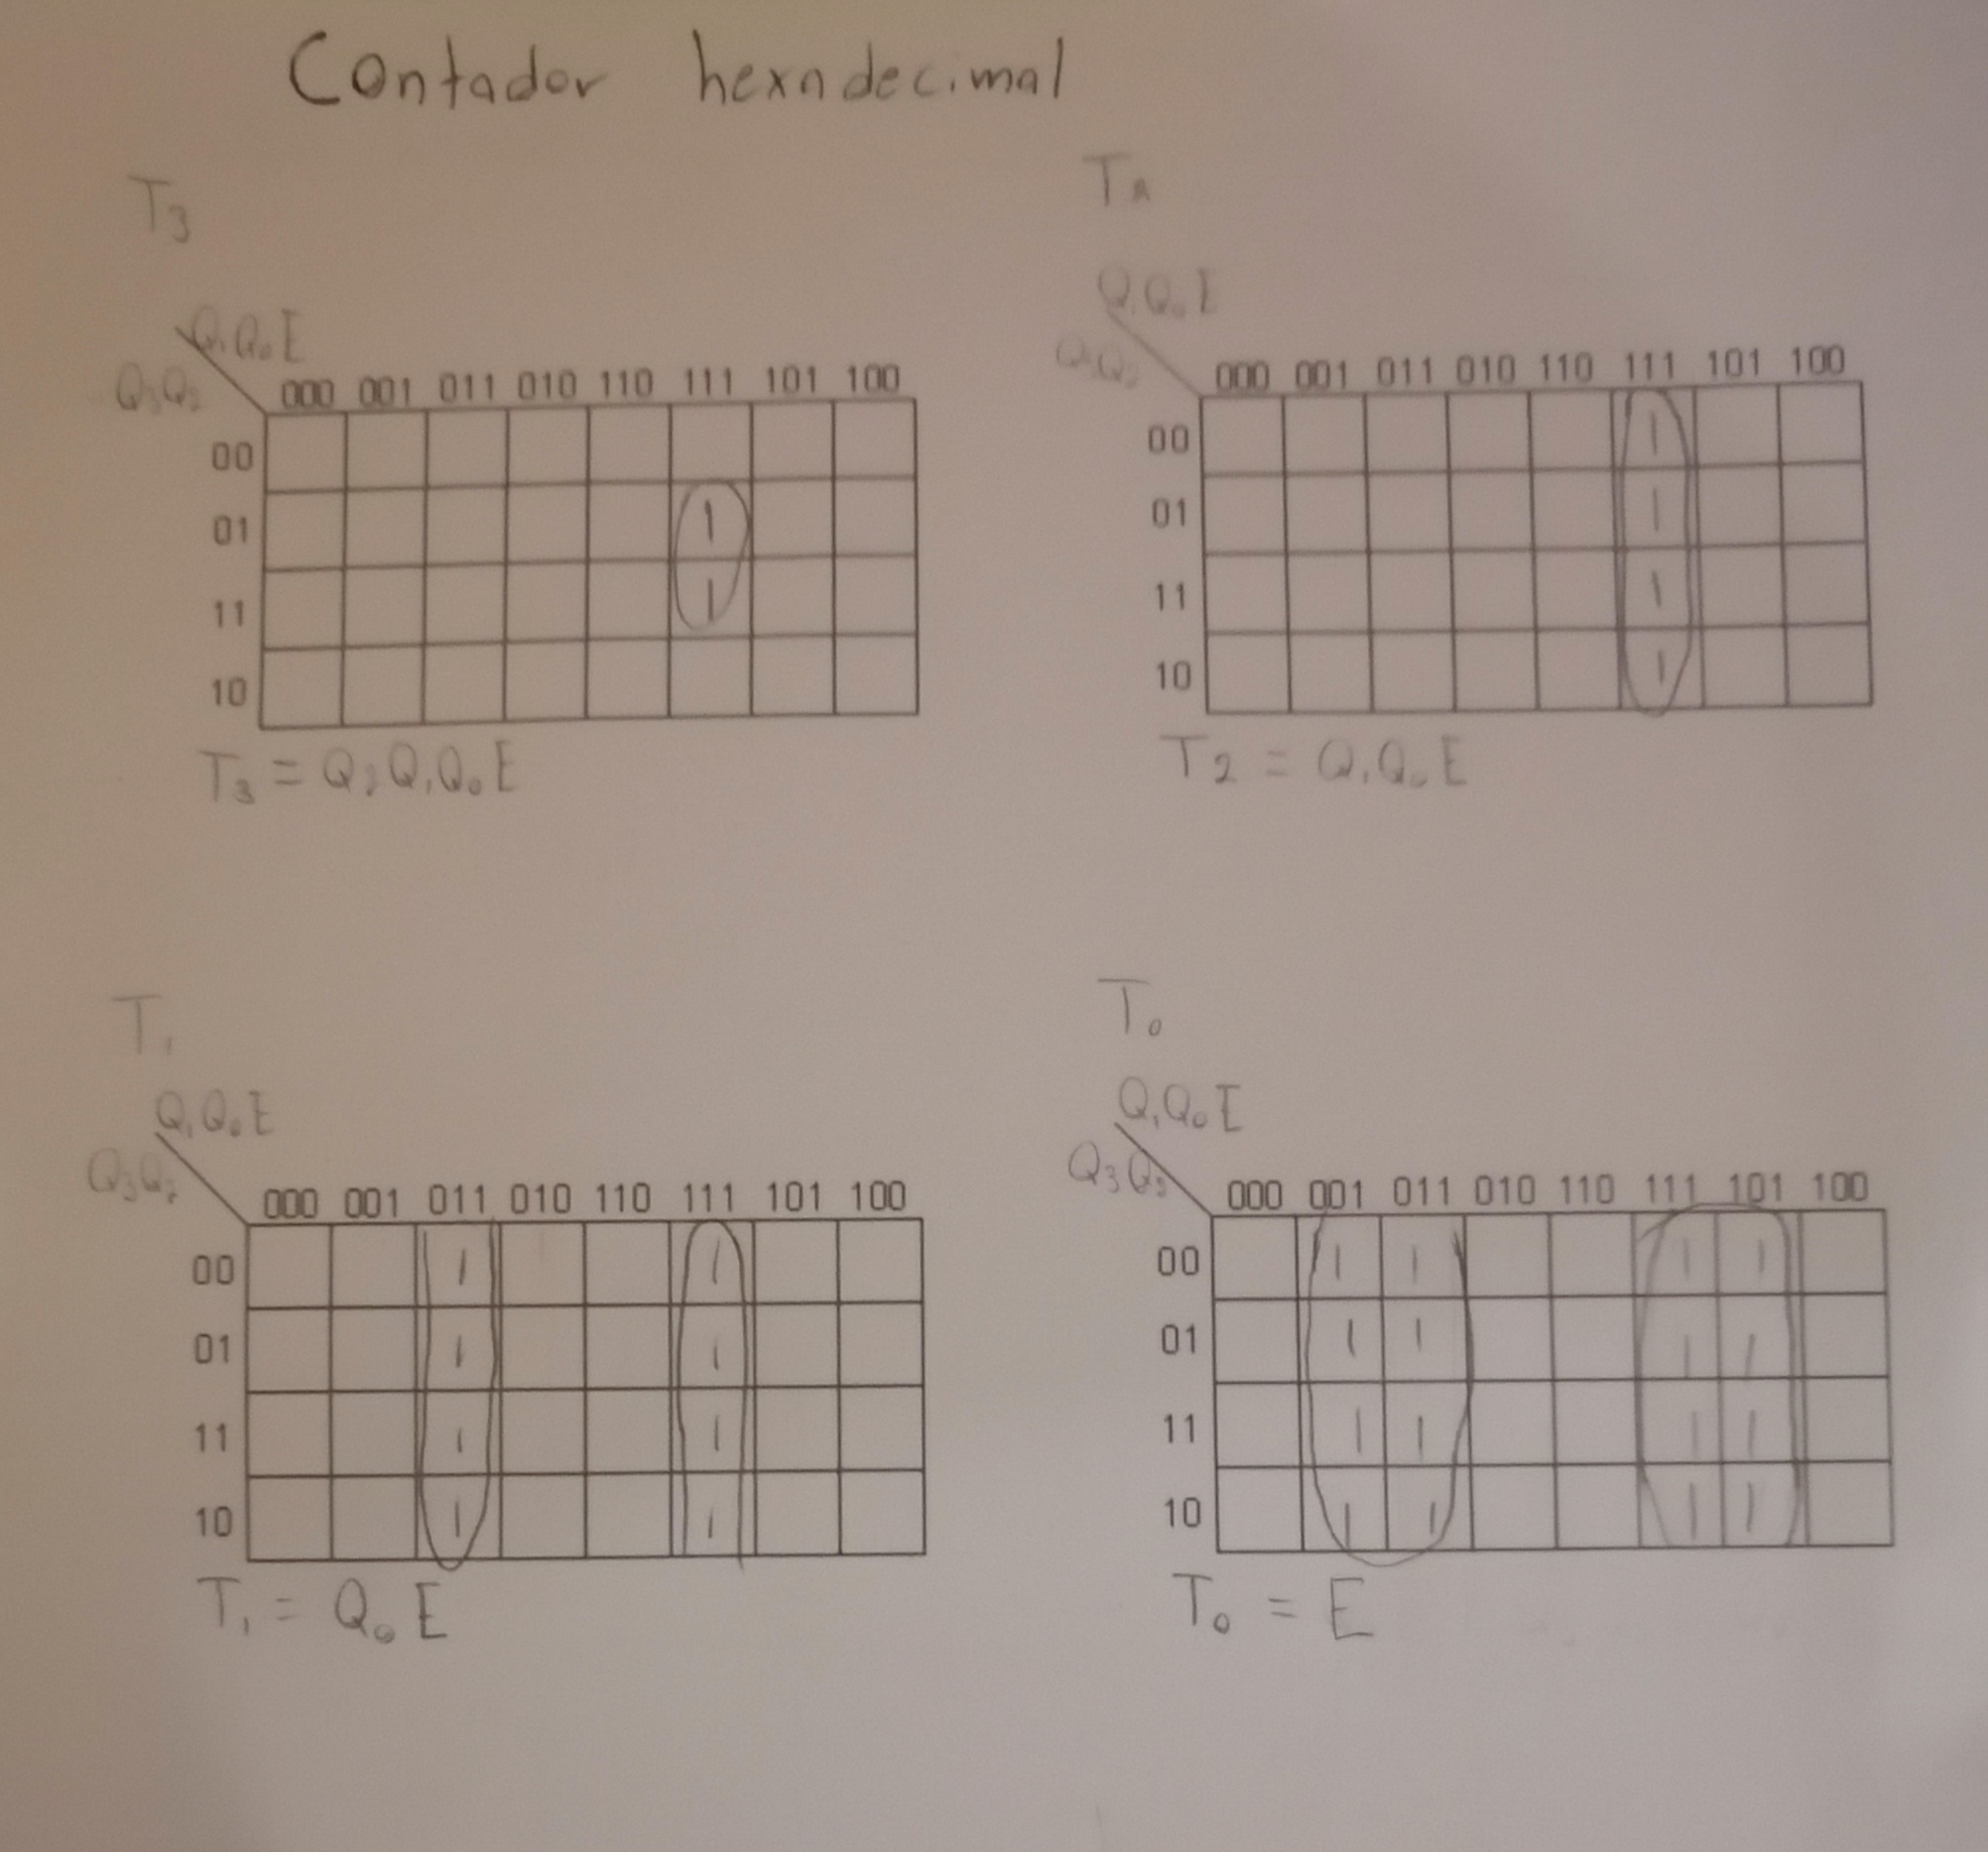 Contador hexadecimal
T3
Q1Q0E
Q3Q2
000 001 011 010 110 111 101 100
00
01 1
11 1
10
T3 = Q2Q1Q0E
T2
Q1Q0E
Q3Q2
000 001 011 010 110 111 101 100
00 1
01 1
11 1
10 1
T2 = Q1Q0E
T1
Q1Q0E
Q3Q2
000 001 011 010 110 111 101 100
00 1 1
01 1 1
11 1 1
10 1 1
T1 = Q0E
T0
Q1Q0E
Q3Q2
000 001 011 010 110 111 101 100
00 1 1 1 1
01 1 1 1 1
11 1 1 1 1
10 1 1 1 1
T0 = E